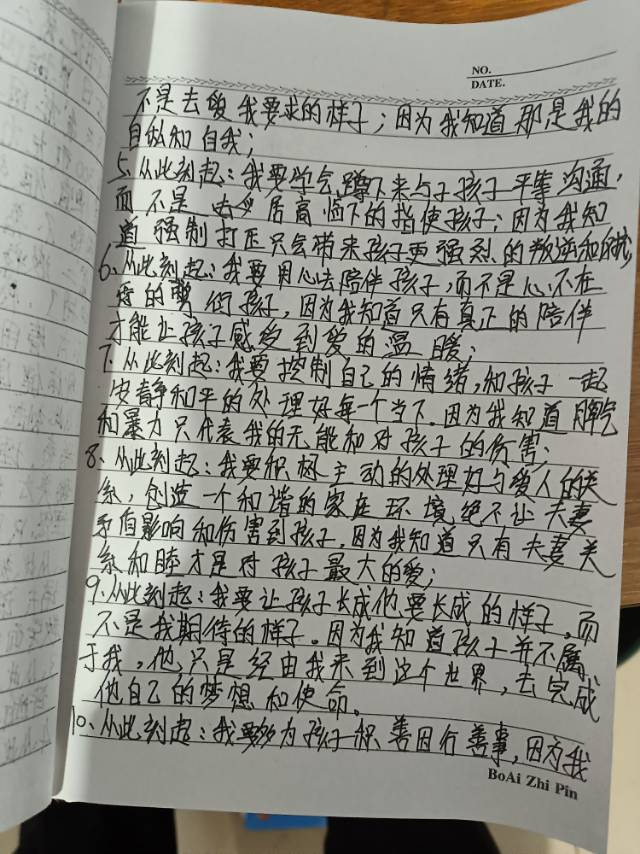 NO.
DATE.
不是去做我要求的样子；因为我知道那是我的
自私和自我；
5、从此刻起：我要学会蹲下来与子孩子平等沟通，
而不是去居高临下的指使孩子；因为我知
道强制打压只会带来孩子更强烈的叛逆和对抗
6、从此刻起：我要用心去陪伴孩子，而不是心不在
焉的敷衍孩子，因为我知道只有真正的陪伴
才能让孩子感受到爱的温暖；
7、从此刻起：我要控制自己的情绪，和孩子一起
安静和平的处理好每一个当下。因为我知道脾气
和暴力只代表我的无能和对孩子的伤害；
8、从此刻起：我要积极主动的处理好与爱人的关
系，创造一个和谐的家庭环境，绝不让夫妻
矛盾影响和伤害到孩子。因为我知道只有夫妻关
系和睦才是对孩子最大的爱；
9、从此刻起：我要让孩子长成他要长成的样子，而
不是我期待的样子。因为我知道孩子并不属
于我，他只是经由我来到这个世界，去完成
他自己的梦想和使命。
10、从此刻起：我要多为孩子积善因行善事，因为我
BoAi Zhi Pin